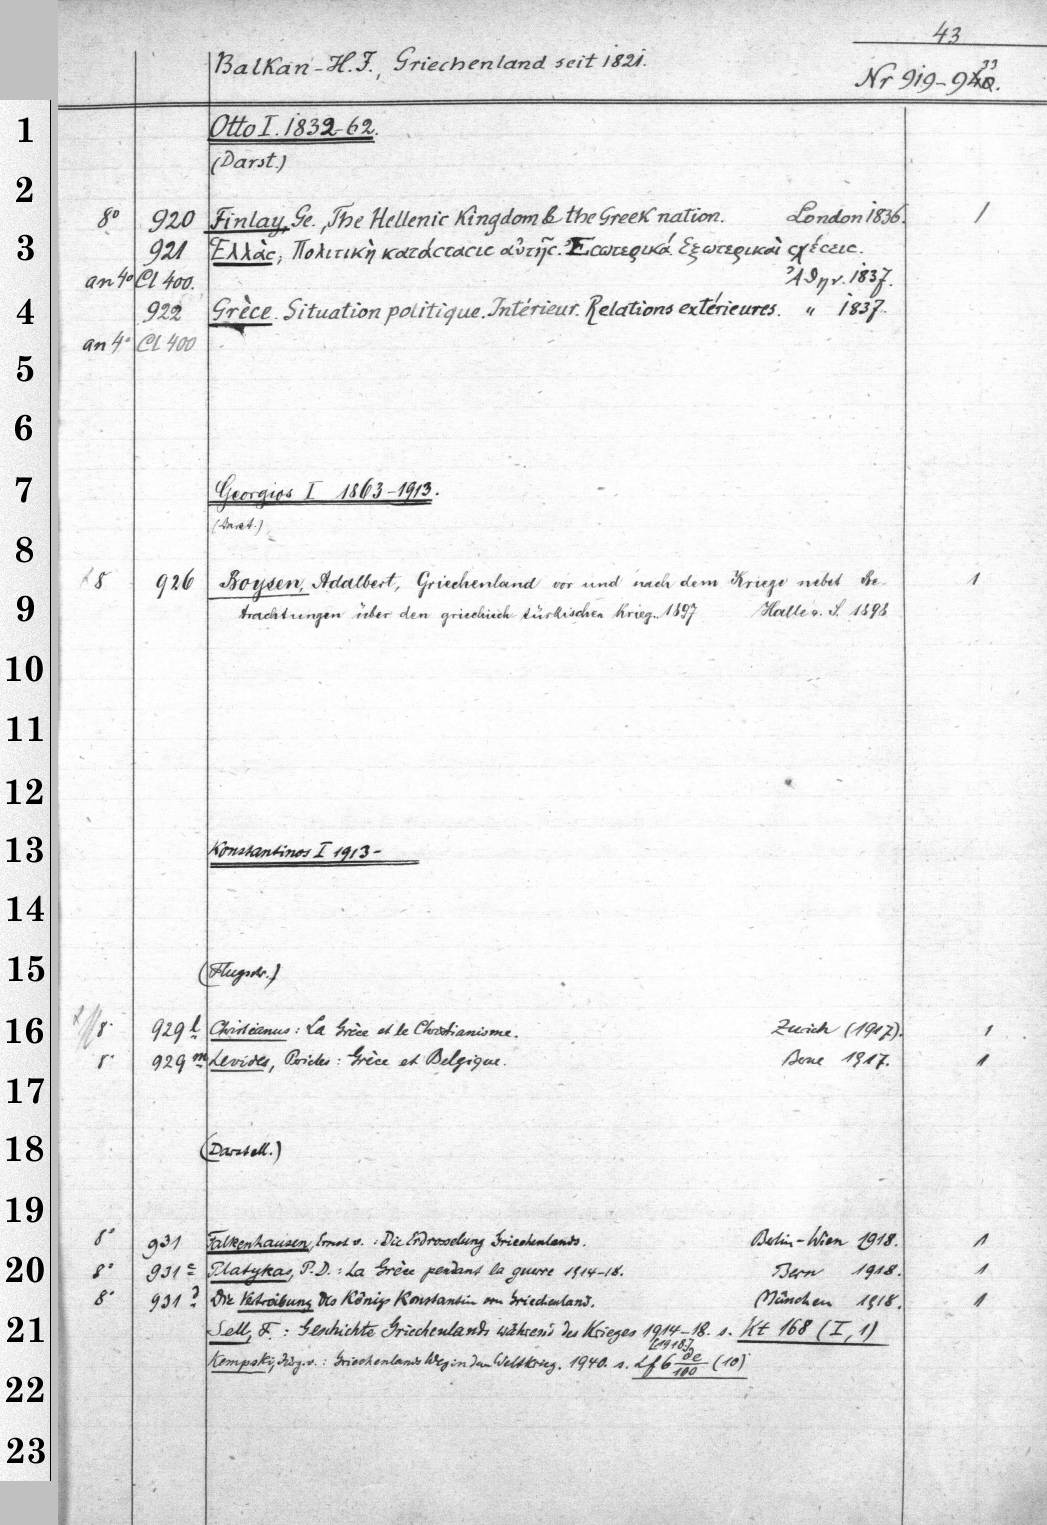 43
Balkan-H.F., Griechenland seit 1821.
Nr 919-933.
1
Otto I. 1832-62.
(Darst.)
2
8° 920 Finlay, Ge., The Hellenic Kingdom & the Greek nation. London 1836. 1
3
921 Ἑλλὰς, Πολιτικὴ κατάστασις αὐτῆς. Ἐσωτερικά. Ἐξωτερικαὶ σχέσεις.
an 4° Cl 400. Ἀθην. 1837.
4
922 Grèce. Situation politique. Intérieur. Relations extérieures. " 1837.
an 4° Cl 400
5
6
7
Georgios I 1863-1913.
(Darst.)
8
8 926 Boysen, Adalbert, Griechenland vor und nach dem Kriege nebst Be- 1
9
trachtungen über den griechisch türkischen Krieg. 1897 Halle a. S. 1898
10
11
12
13
Konstantinos I 1913-
14
15
(Flugschr.)
16
8° 929 l Christianus: La Grèce et le Christianisme. Zürich (1917). 1
8° 929 m Levides, Pericles: Grèce et Belgique. Berne 1917. 1
17
18
(Darstell.)
19
8° 931 Falkenhausen, Ernst v.: Die Erdrosselung Griechenlands. Berlin-Wien 1918. 1
20
8° 931 c Platykas, P.D.: La Grèce pendant la guerre 1914-18. Bern 1918. 1
8° 931 Die Vertreibung des Königs Konstantin von Griechenland. München 1918. 1
21
Sell, F.: Geschichte Griechenlands während des Krieges 1914-18. s. Kt 168 (I, 1)
Kempski, Jürg. v.: Griechenlands Weg in den Weltkrieg. 1940. s. Lf 6 de/100 (10)
22
23